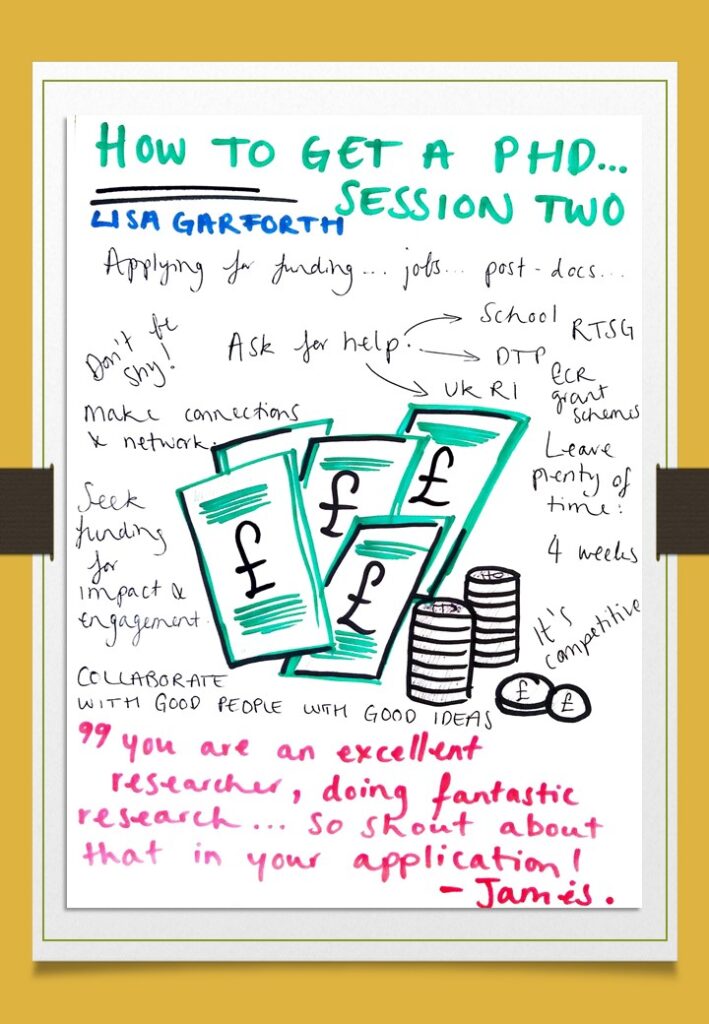 HOW TO GET A PHD...
SESSION TWO
LISA GARFORTH
Applying for funding... jobs... post-docs...
Don't be
shy!
Ask for help..
School
DTP
UKRI
RTSG
ECR
grant
schemes
Make connections
& network.
Leave
plenty of
time:
4 weeks
Seek
funding
for
impact &
engagement.
£
£
£
£
It's
competitive
£
£
COLLABORATE
WITH GOOD PEOPLE WITH GOOD IDEAS
"you are an excellent
researcher, doing fantastic
research... so shout about
that in your application!
- James.